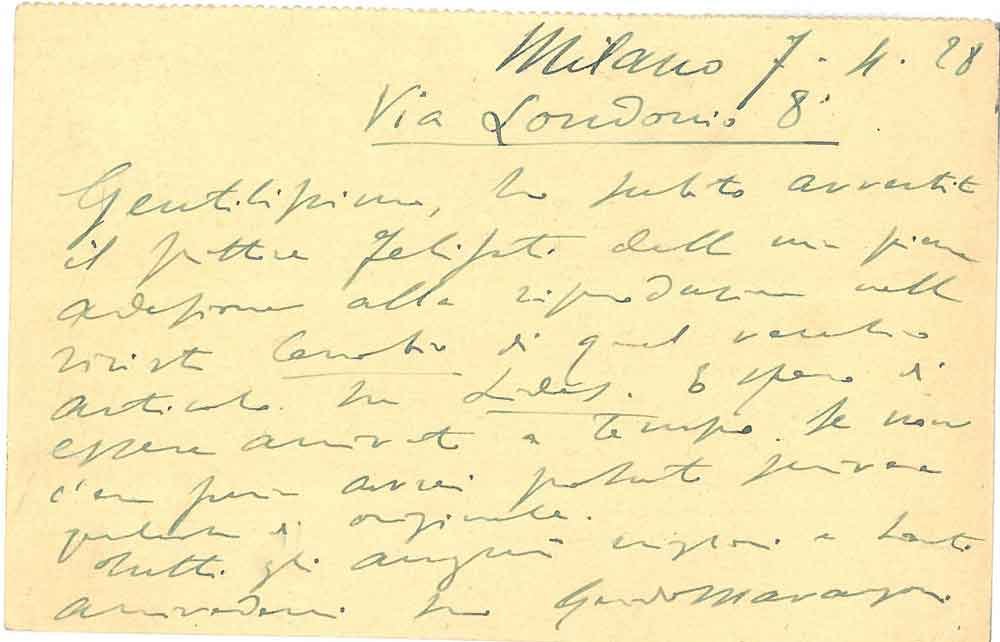 Milano 7. 4. 28
Via Londonio 8
Gentilissimo, ho subito avvertito
il pittore della mia piena
adesione alla riproduzione nella
rivista Cenobio di quel vecchio
articolo su E spero di
essere arrivato a tempo. Se non
c'era avrei potuto scrivere
qualcosa di originale.
Tutti gli auguri migliori e tanti
arrivederci suo Guido Marangoni